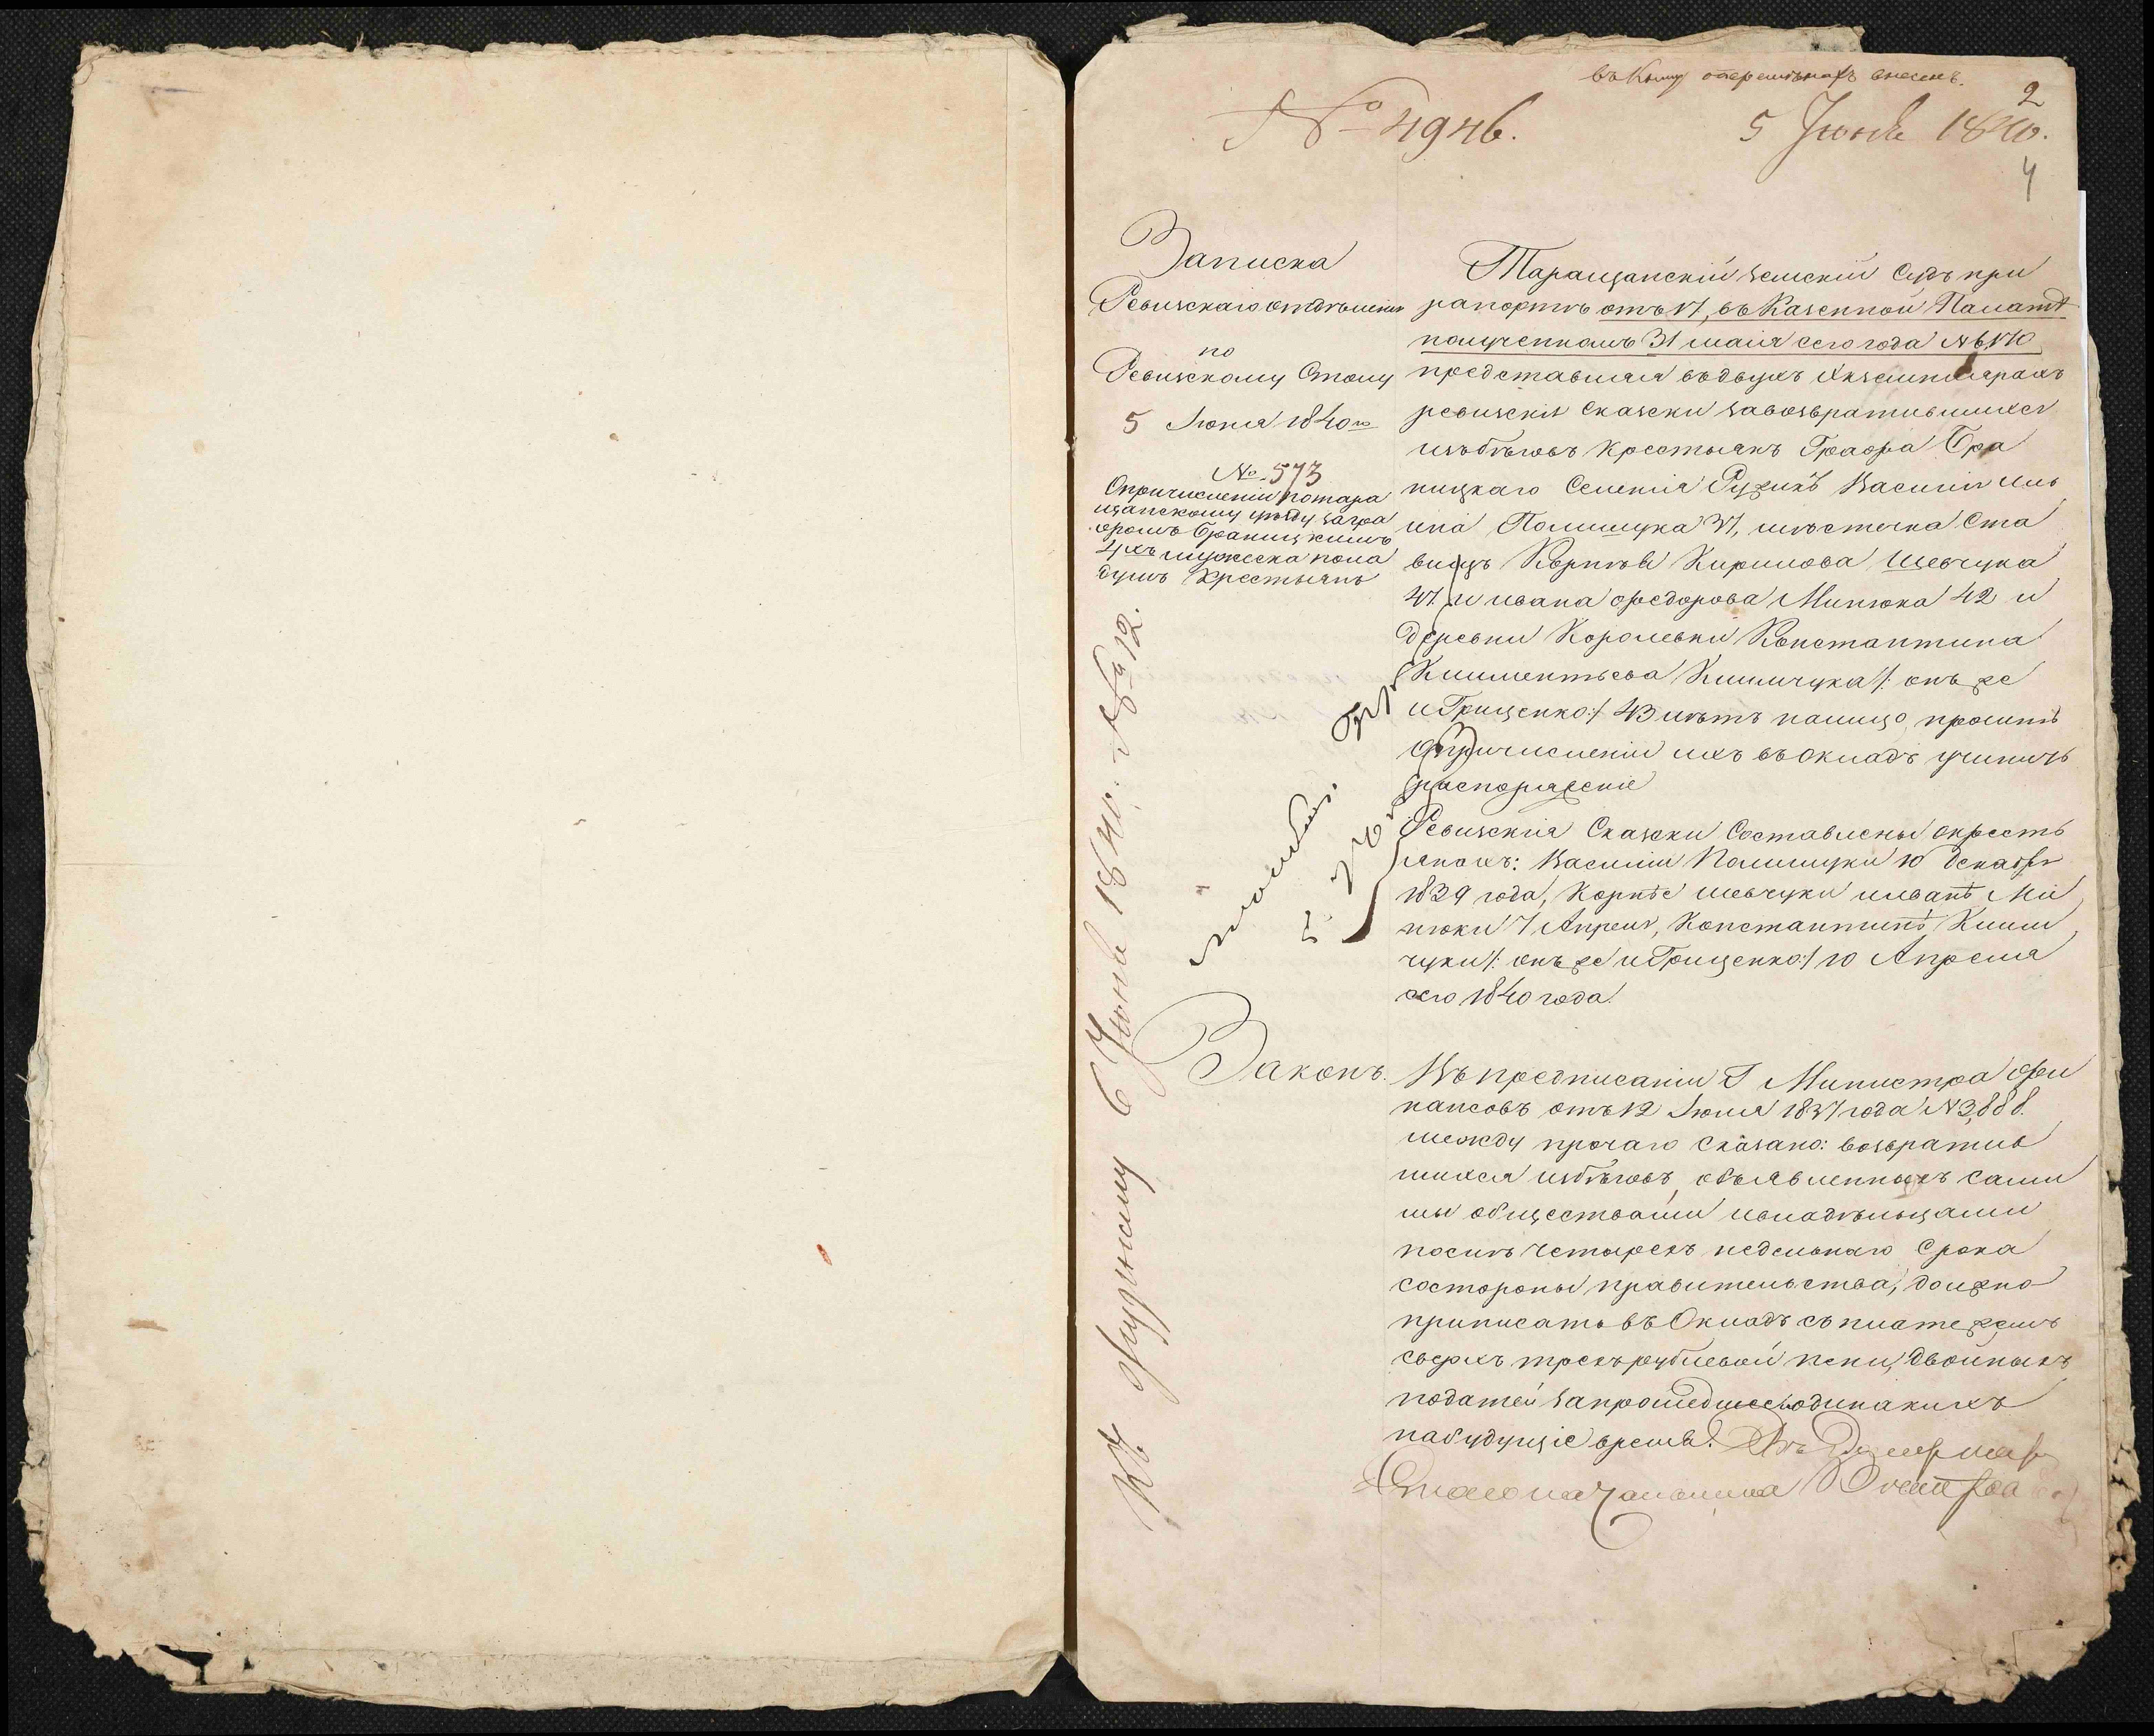 въ Книгу
2
№ 4946.
5 Іюня 1840.
4
Записка
Ревизскаго отдѣленія
по
Ревизскому Столу
5 Іюня 1840 го
№ 573
О причисленіи по тара
щанскому уѣзду за гра
фомъ Браницкимъ
4хъ мужеска пола
душъ крестьянъ
Таращанскій земскій Судъ при
рапортѣ отъ 17, въ Казенной Палатѣ
полученномъ 31 маія сего года № 6170
представляя въ двухъ экземплярахъ
ревизскія сказски за возвратившихся
изъ бѣговъ крестьянъ Графа Бра
ницкаго Селенія Василія Иль
ина Полищука 37, мѣстечка Ста
вищъ Корнѣя Кирилова Шевчука
47 и ивана федорова Минюка 42 и
деревни Королевки Константина
Климентьева Климчука /: онъ же
и Грищенко :/ 43 лѣтъ палицо, проситъ
о причисленіи ихъ въ окладъ учинить
распоряженіе
Ревизскія Сказски Составлены о кресть
янахъ: Василіи Полищуки 10 декабря
1839 года, Корнѣе шевчуки и иванѣ Ми
нюки 7 Апреля, Константинѣ Клим
чуки /: онъ же и Грищенко :/ 10 Апреля
сего 1840 года.
Законъ.
Въ предписаніи Г Министра фи
нансовъ отъ 12 Іюля 1837 года № 3,888.
между прочаго сказано: возвратив
шихся изъ бѣговъ, объявленныхъ сами
мы обществами и владѣльцами
послѣ четырехъ недельнаго срока
со стороны правительства, должно
приписать въ Окладъ съ платежемъ
сверхъ трехъ рублевой пени, двойныхъ
податей за прошедшее и одинакихъ
на будущіе время.
Къ 6 Іюня 1840.